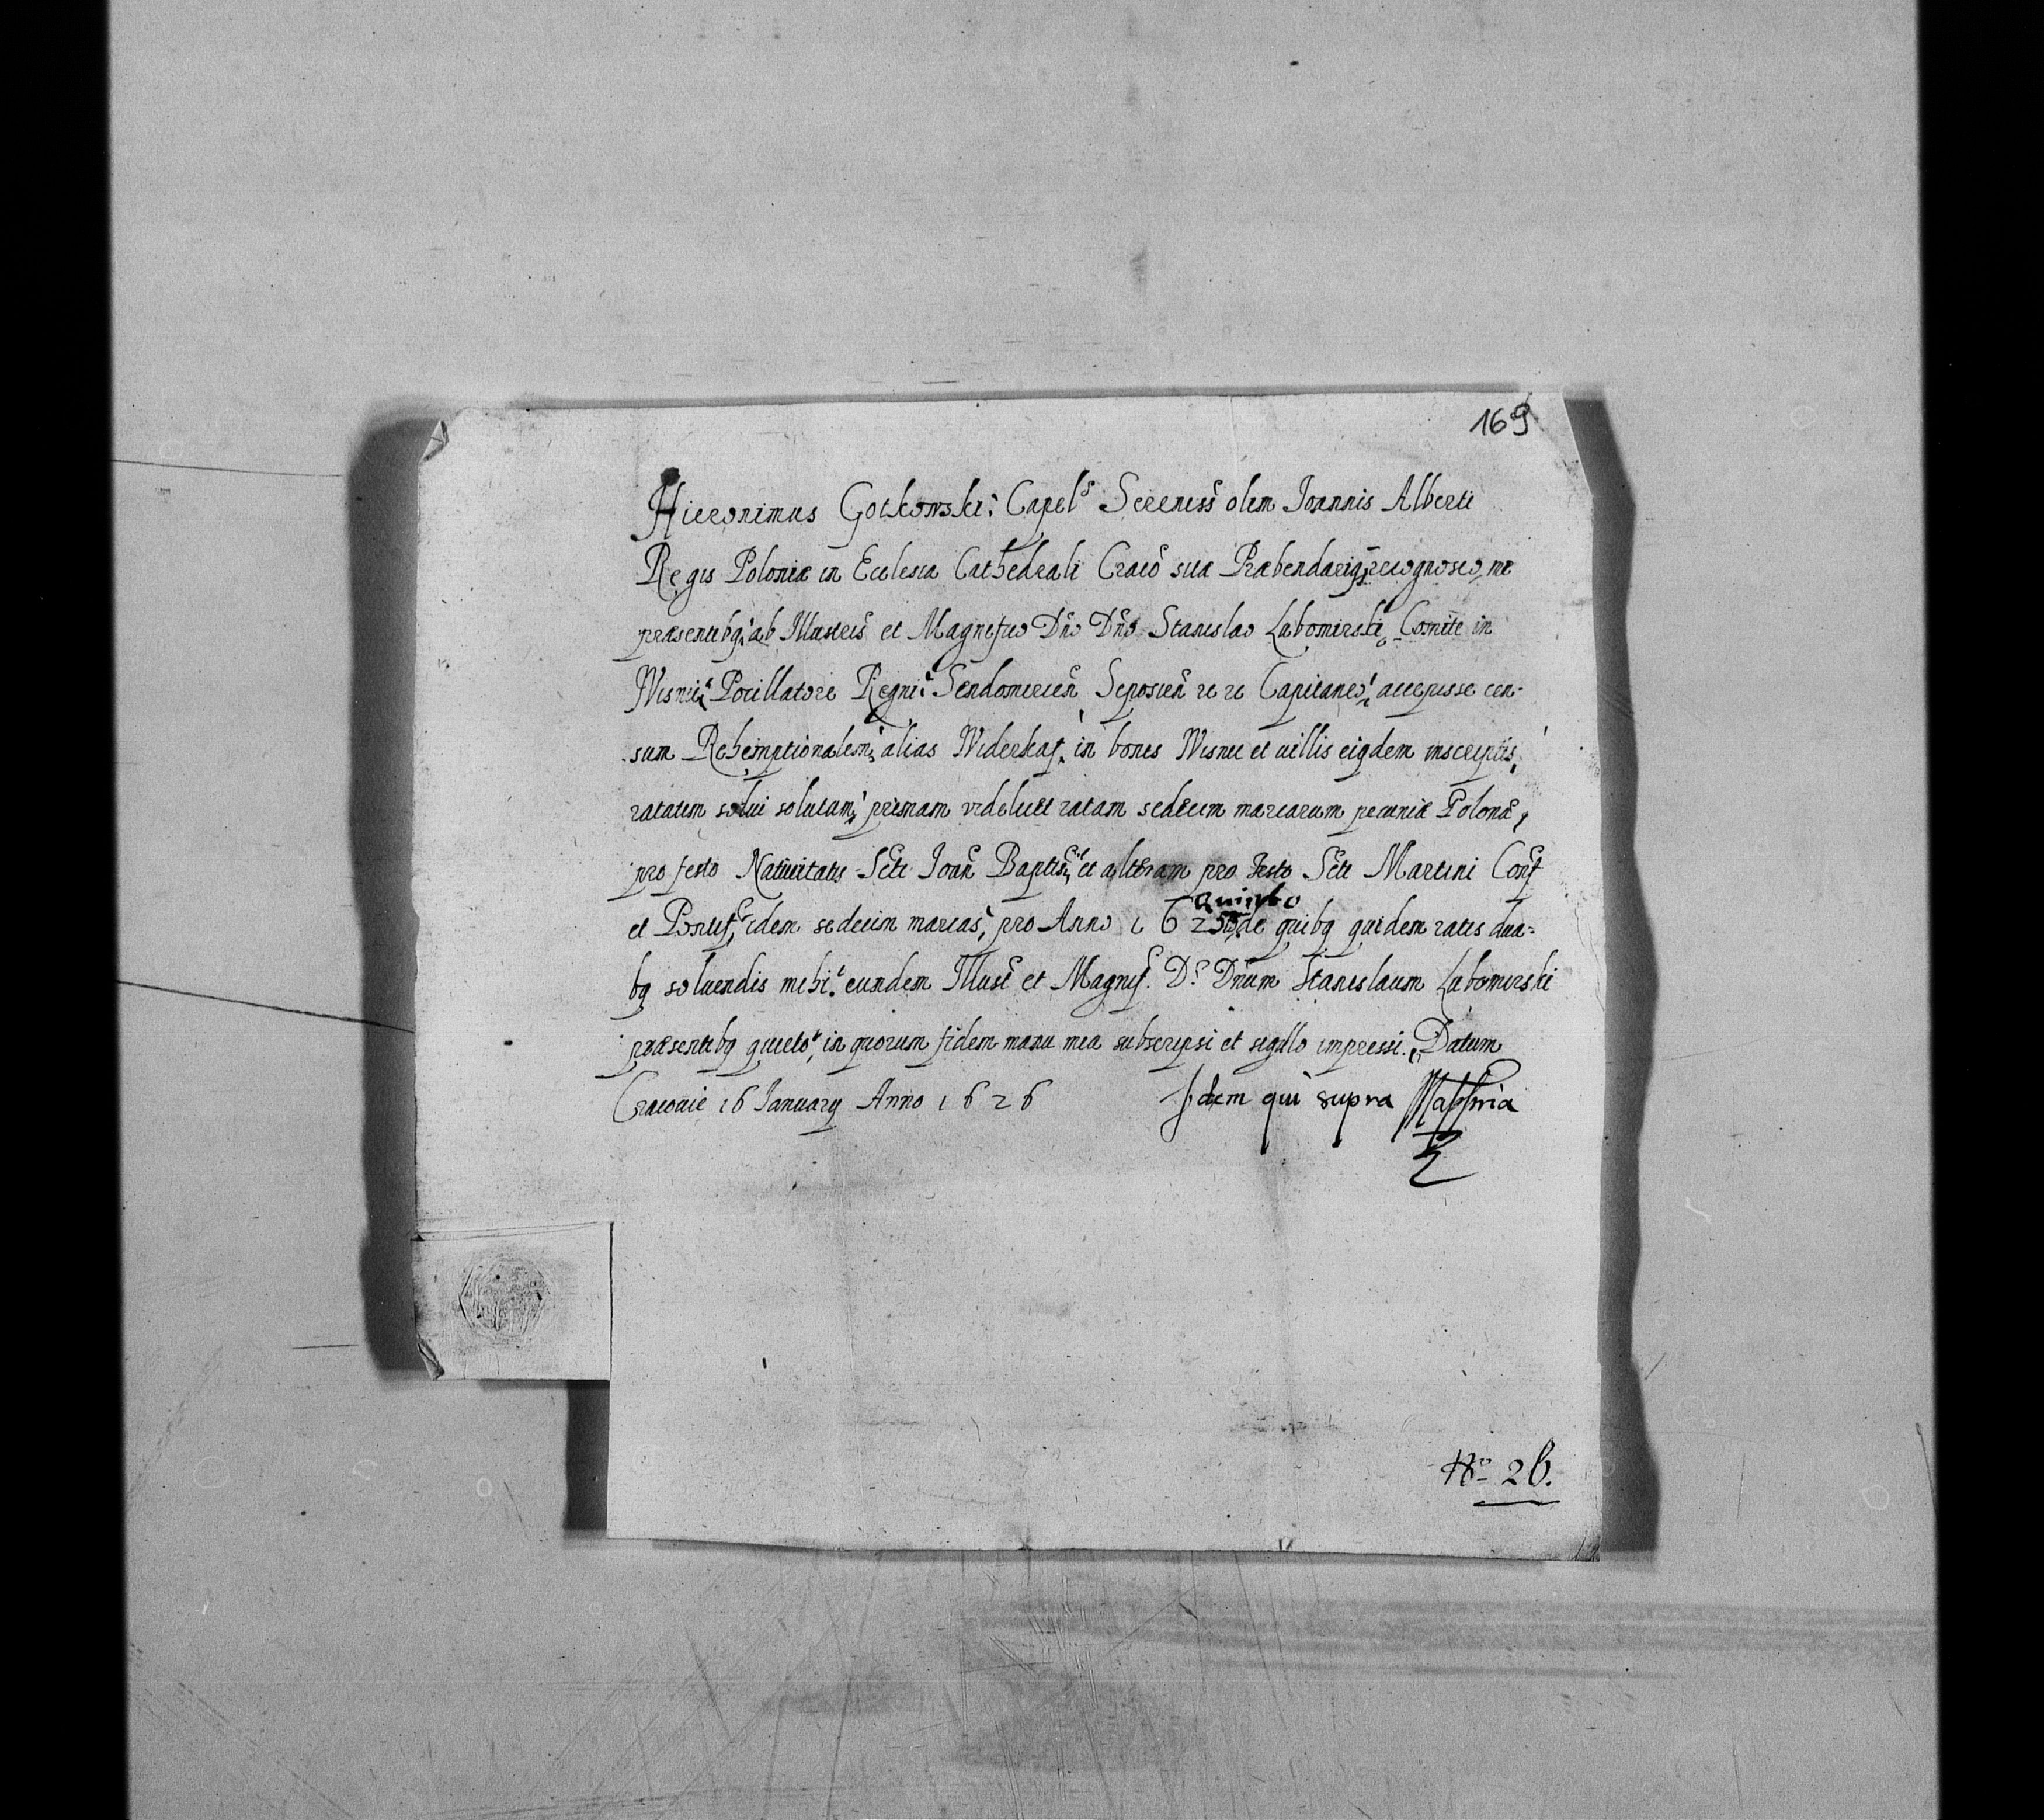 169
Hieronimus Gotkowski: Capels Sereniss olim Joannis Alberti
Regis Poloniæ in Ecclesia Cathedrali Craco sua Præbendariq; recognosco, me
præsentibq, ab Illustris et Magnifico Dño Dño Stanislao Lubomirski, Comite in
Wisnic, Pocillatore Regni: Sendomirien Scposien Capitaneo, accepisse cen-
sum Rehemptionalem, alias Widerkaf, in bonis Wisnic et villis eiqdem inscriptis,
ratatim solui solutam, primam videlicet ratam sedecim marcarum pecuniæ Polonæ,
pro festo Natiuitatis Scti Joan Baptis, et alteram pro Festo Scti Martini Conf
et Pontif, idem sedecim marcas, pro Anno 1625to
quinto
de quibq quidem ratis dua-
bq soluendis mihi. eundem Illust et Magnif. D. Dnum Stanislaum Lubomirski
præsentibq quieto, in quorum fidem manu mea subscripsi et sigillo impressi. Datum
Cracouie 16 January Anno 1626
Idem qui supra
No 26.